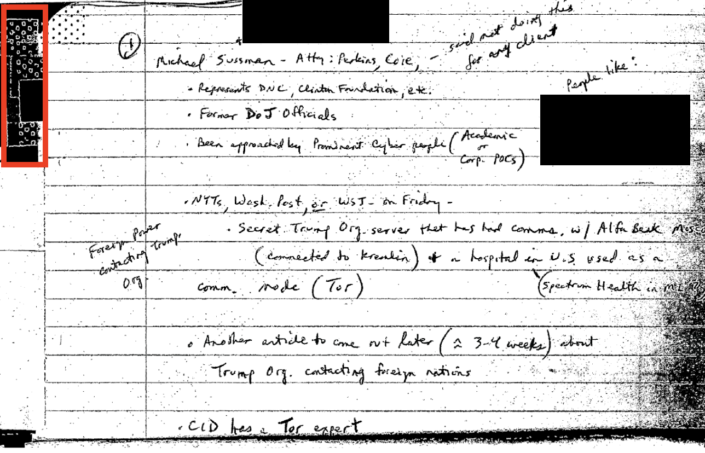 ① Michael Sussman - Atty: Perkins, Coie, - said not doing this
for any client
People like:
• Represents DNC, Clinton Foundation, etc.
• Former DoJ Officials
• Been approached by Prominent Cyber people (Academic
or
Corp. POCs)
• NYTs, Wash. Post, or WSJ - on Friday -
• Secret Trump Org. server that has had comms. w/ Alfa Bank
(connected to Kremlin) & a hospital in U.S. used as a
comm. node (Tor)
(Spectrum Health in
Foreign Power
contacting Trump
Org
• Another article to come out later (≈ 3-4 weeks) about
Trump Org. contacting foreign nations
• CID has a Tor expert